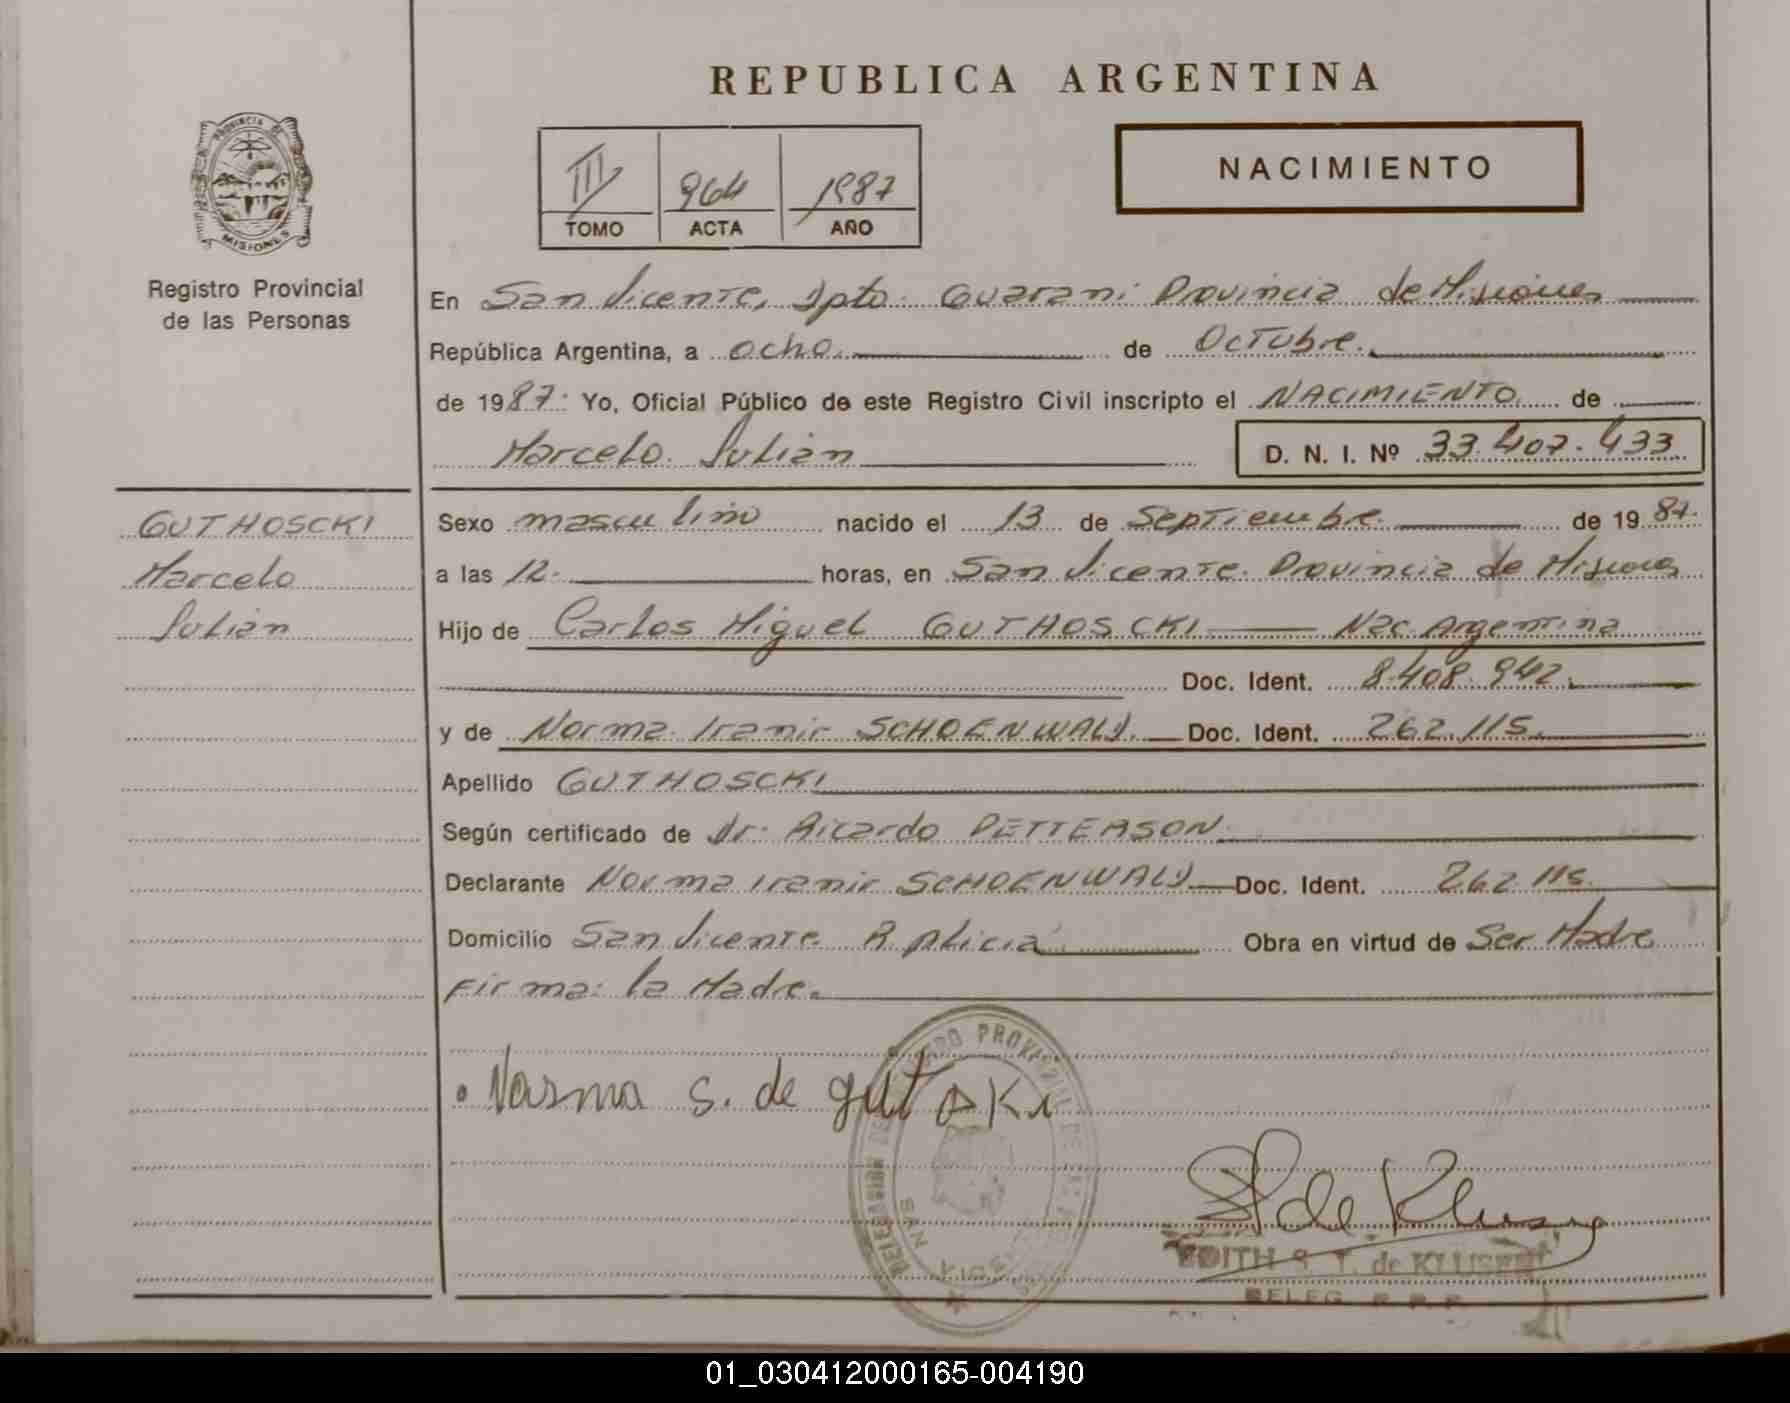 REPUBLICA ARGENTINA
PROVINCIA DE
MISIONES
Registro Provincial
de las Personas
III 964 1987
TOMO ACTA AÑO
NACIMIENTO
En San Vicente, Dpto. Guarani Provincia de Misiones
República Argentina, a ocho. de Octubre.
de 1987. Yo, Oficial Público de este Registro Civil inscripto el NACIMIENTO de
Marcelo Julián D. N. I. Nº 33.407.433
GUTHOSCKI
Marcelo
Julián
Sexo masculino nacido el 13 de Septiembre de 1987.
a las 12. horas, en San Vicente. Provincia de Misiones
Hijo de Carlos Miguel GUTHOSCKI Nac. Argentina
Doc. Ident. 8.408.942.
y de Norma Iranir SCHOENWALD. Doc. Ident. 262.115.
Apellido GUTHOSCKI
Según certificado de Dr. Ricardo PETTERSON.
Declarante Norma Iranir SCHOENWALD Doc. Ident. 262.115.
Domicilio San Vicente Obra en virtud de Ser Madre
Firma: la Madre.
Norma S. de gutoski
DELEGACION PROVINCIAL DE
SAN VICENTE
de Klusen
EDITH S. T. de KLUSEN
DELEG. R. P. P.
01_030412000165-004190